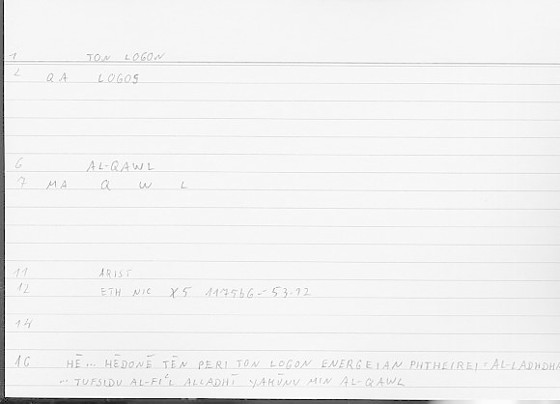 1 TON LOGON
2 QA LOGOS
6 AL-QAWL
7 MA Q W L
11 ARIST
12 ETH NIC X5 1175b6-53.12
14
16 HĒ... HĒDONĒ TĒN PERI TON LOGON ENERGEIAN PHTHEIREI = AL-LADHDHA
... TUFSIDU AL-FIʿL ALLADHĪ YAKŪNU MIN AL-QAWL